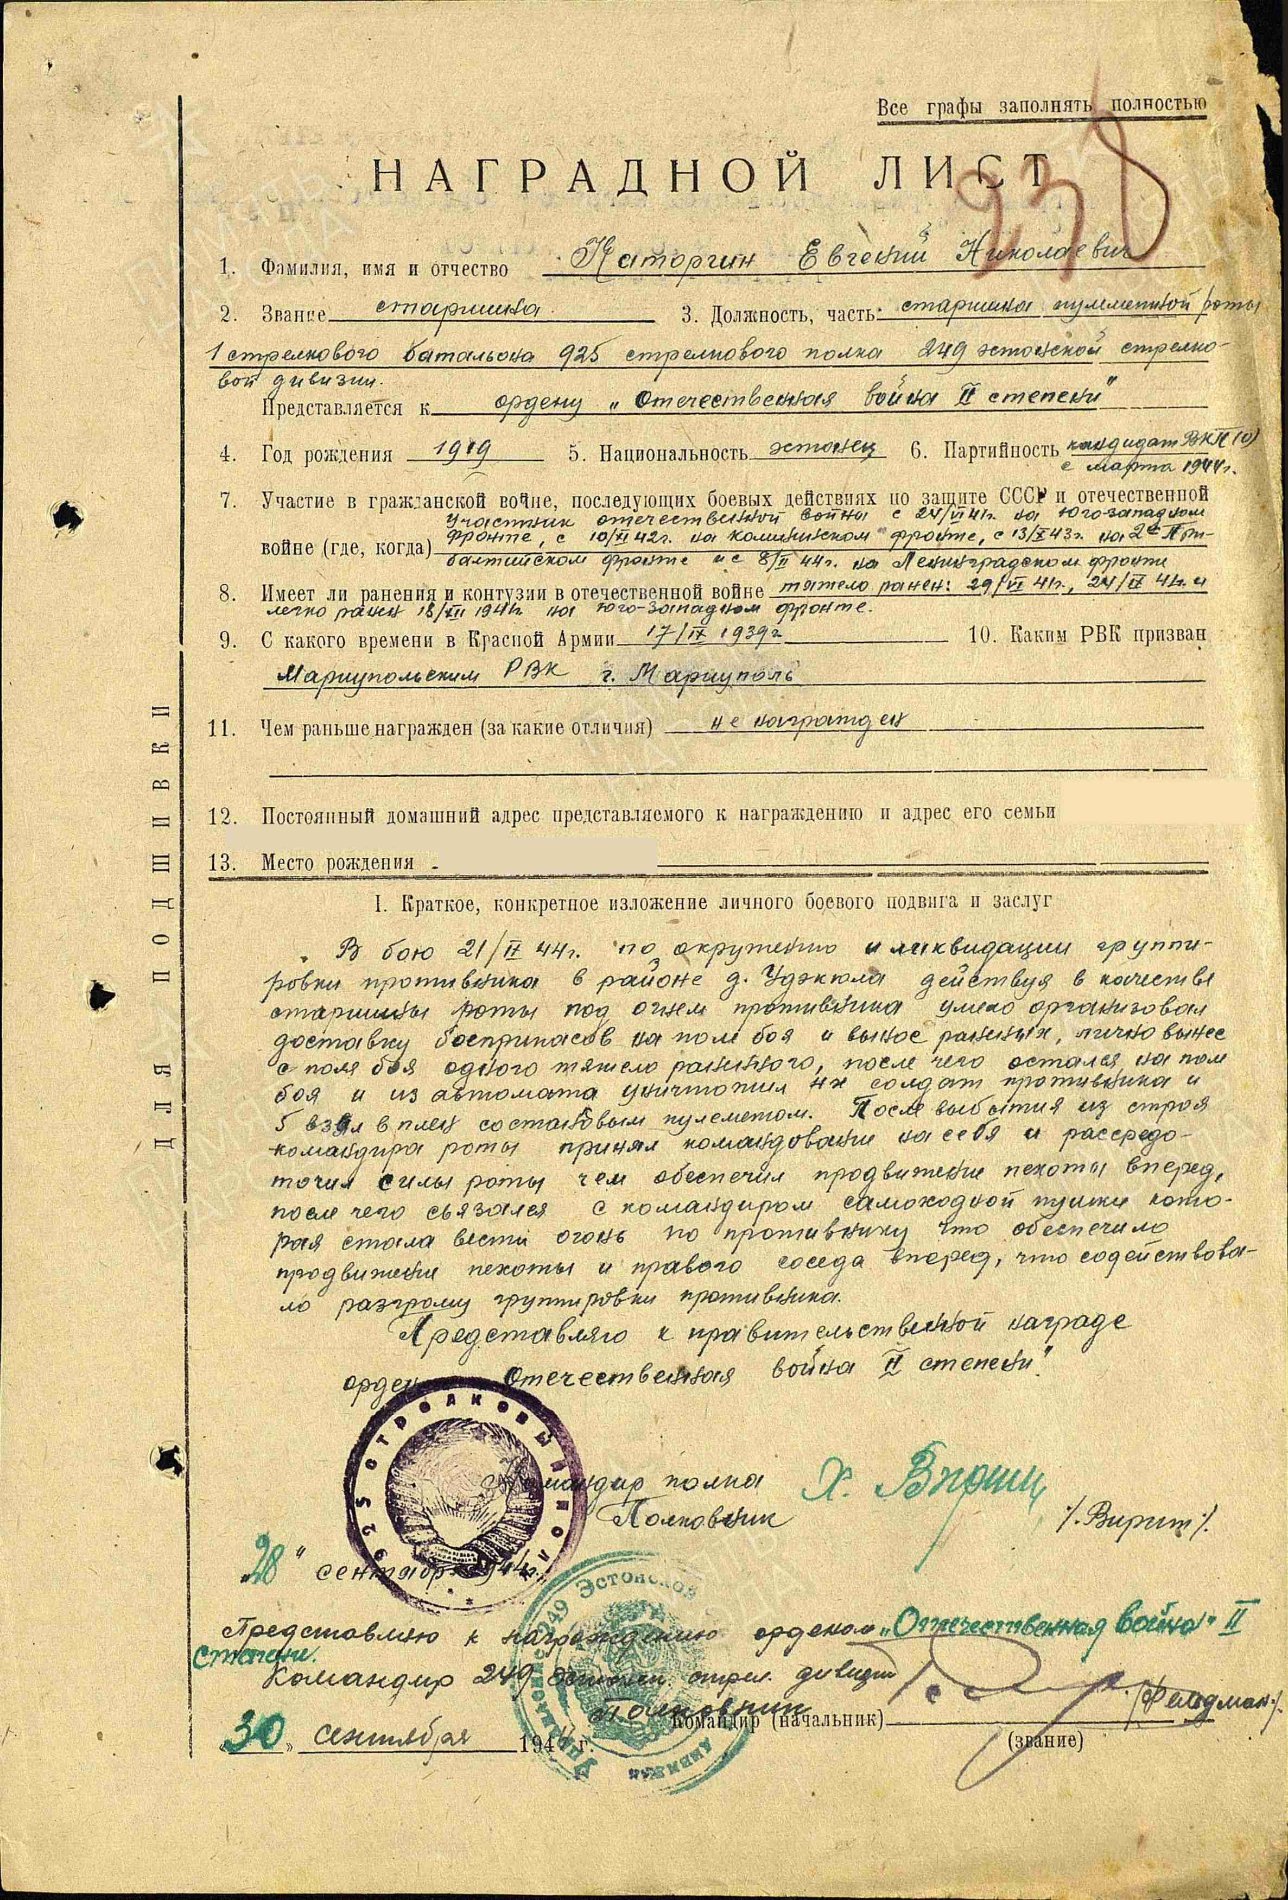 Все графы заполнять полностью
938
НАГРАДНОЙ ЛИСТ
1. Фамилия, имя и отчество Каторгин Евгений Николаевич
2. Звание старшина 3. Должность, часть старшина пулеметной роты
1 стрелкового батальона 925 стрелкового полка 249 эстонской стрелко-
вой дивизии.
Представляется к ордену „Отечественная война II степени"
4. Год рождения 1919 5. Национальность эстонец 6. Партийность кандидат ВКП(б)
с марта 1944г.
7. Участие в гражданской войне, последующих боевых действиях по защите СССР и отечественной
участник отечественной войны с 24/VI 41г. на Юго-западном
войне (где, когда) фронте, с 10/XI 42г. на Калининском фронте, с 13/X 43г. на 2ом При-
балтийском фронте и с 8/II 44г. на Ленинградском фронте
8. Имеет ли ранения и контузии в отечественной войне тяжело ранен: 29/VI 41г., 24/IX 41г. и
легко ранен 18/XII 1941г. на юго-западном фронте.
9. С какого времени в Красной Армии 17/IX 1939г. 10. Каким РВК призван
Мариупольским РВК г. Мариуполь
11. Чем раньше награжден (за какие отличия) не награжден
12. Постоянный домашний адрес представляемого к награждению и адрес его семьи
13. Место рождения
I. Краткое, конкретное изложение личного боевого подвига и заслуг
В бою 21/IX 44г. по окружению и ликвидации группи-
ровки противника в районе д. Удэкюля действуя в качестве
старшины роты под огнем противника умело организовал
доставку боеприпасов на поле боя и вынос раненых, лично вынес
с поля боя одного тяжело раненного, после чего остался на поле
боя и из автомата уничтожил солдат противника и
5 взял в плен со станковым пулеметом. После выбытия из строя
командира роты принял командование на себя и рассредо-
точил силы роты чем обеспечил продвижение пехоты вперед,
после чего связался с командиром самоходной пушки кото-
рая стала вести огонь по противнику что обеспечило
продвижение пехоты и правого соседа вперед, что содействова-
ло разгрому группировки противника.
Представляю к правительственной награде
орден Отечественная война II степени".
925 СТРЕЛКОВЫЙ ПОЛК
Командир полка Х. Вирит
Полковник /Вирит/.
„28" сентября 1944г.
249 Эстонская
Представляю к награждению орденом „Отечественная война" II
степени.
Командир 249 Эстонск. стрел. дивизии
Полковник /Фельдман/.
Командир (начальник)
(звание)
„30" сентября 1944 г.
Управление
дивизия
ДЛЯ ПОДШИВКИ
ПАМЯТЬ НАРОДА